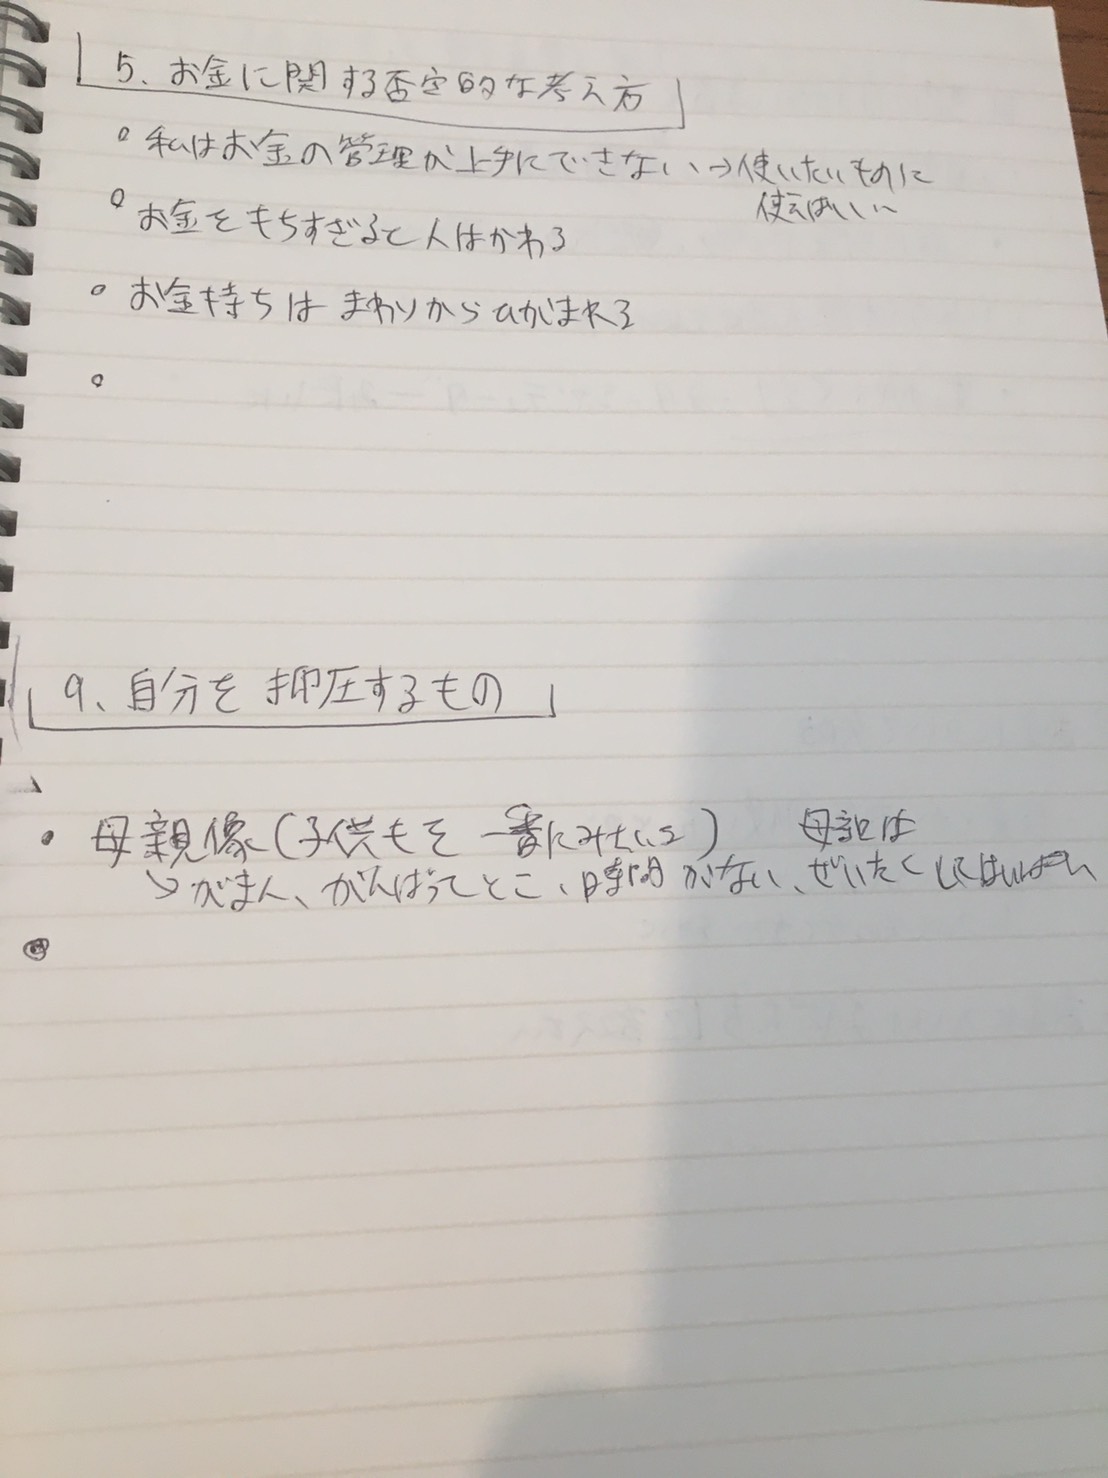 5、お金に関する否定的な考え方
私はお金の管理が上手にできない→使いたいものに
使えばいい
お金をもちすぎると人はかわる
お金持ちは まわりからひがまれる
9、自分を抑圧するもの
母親像(子供を 一番に) 母親は
がまん、がんばってとこ、時間がない、ぜいたくしてはいけない